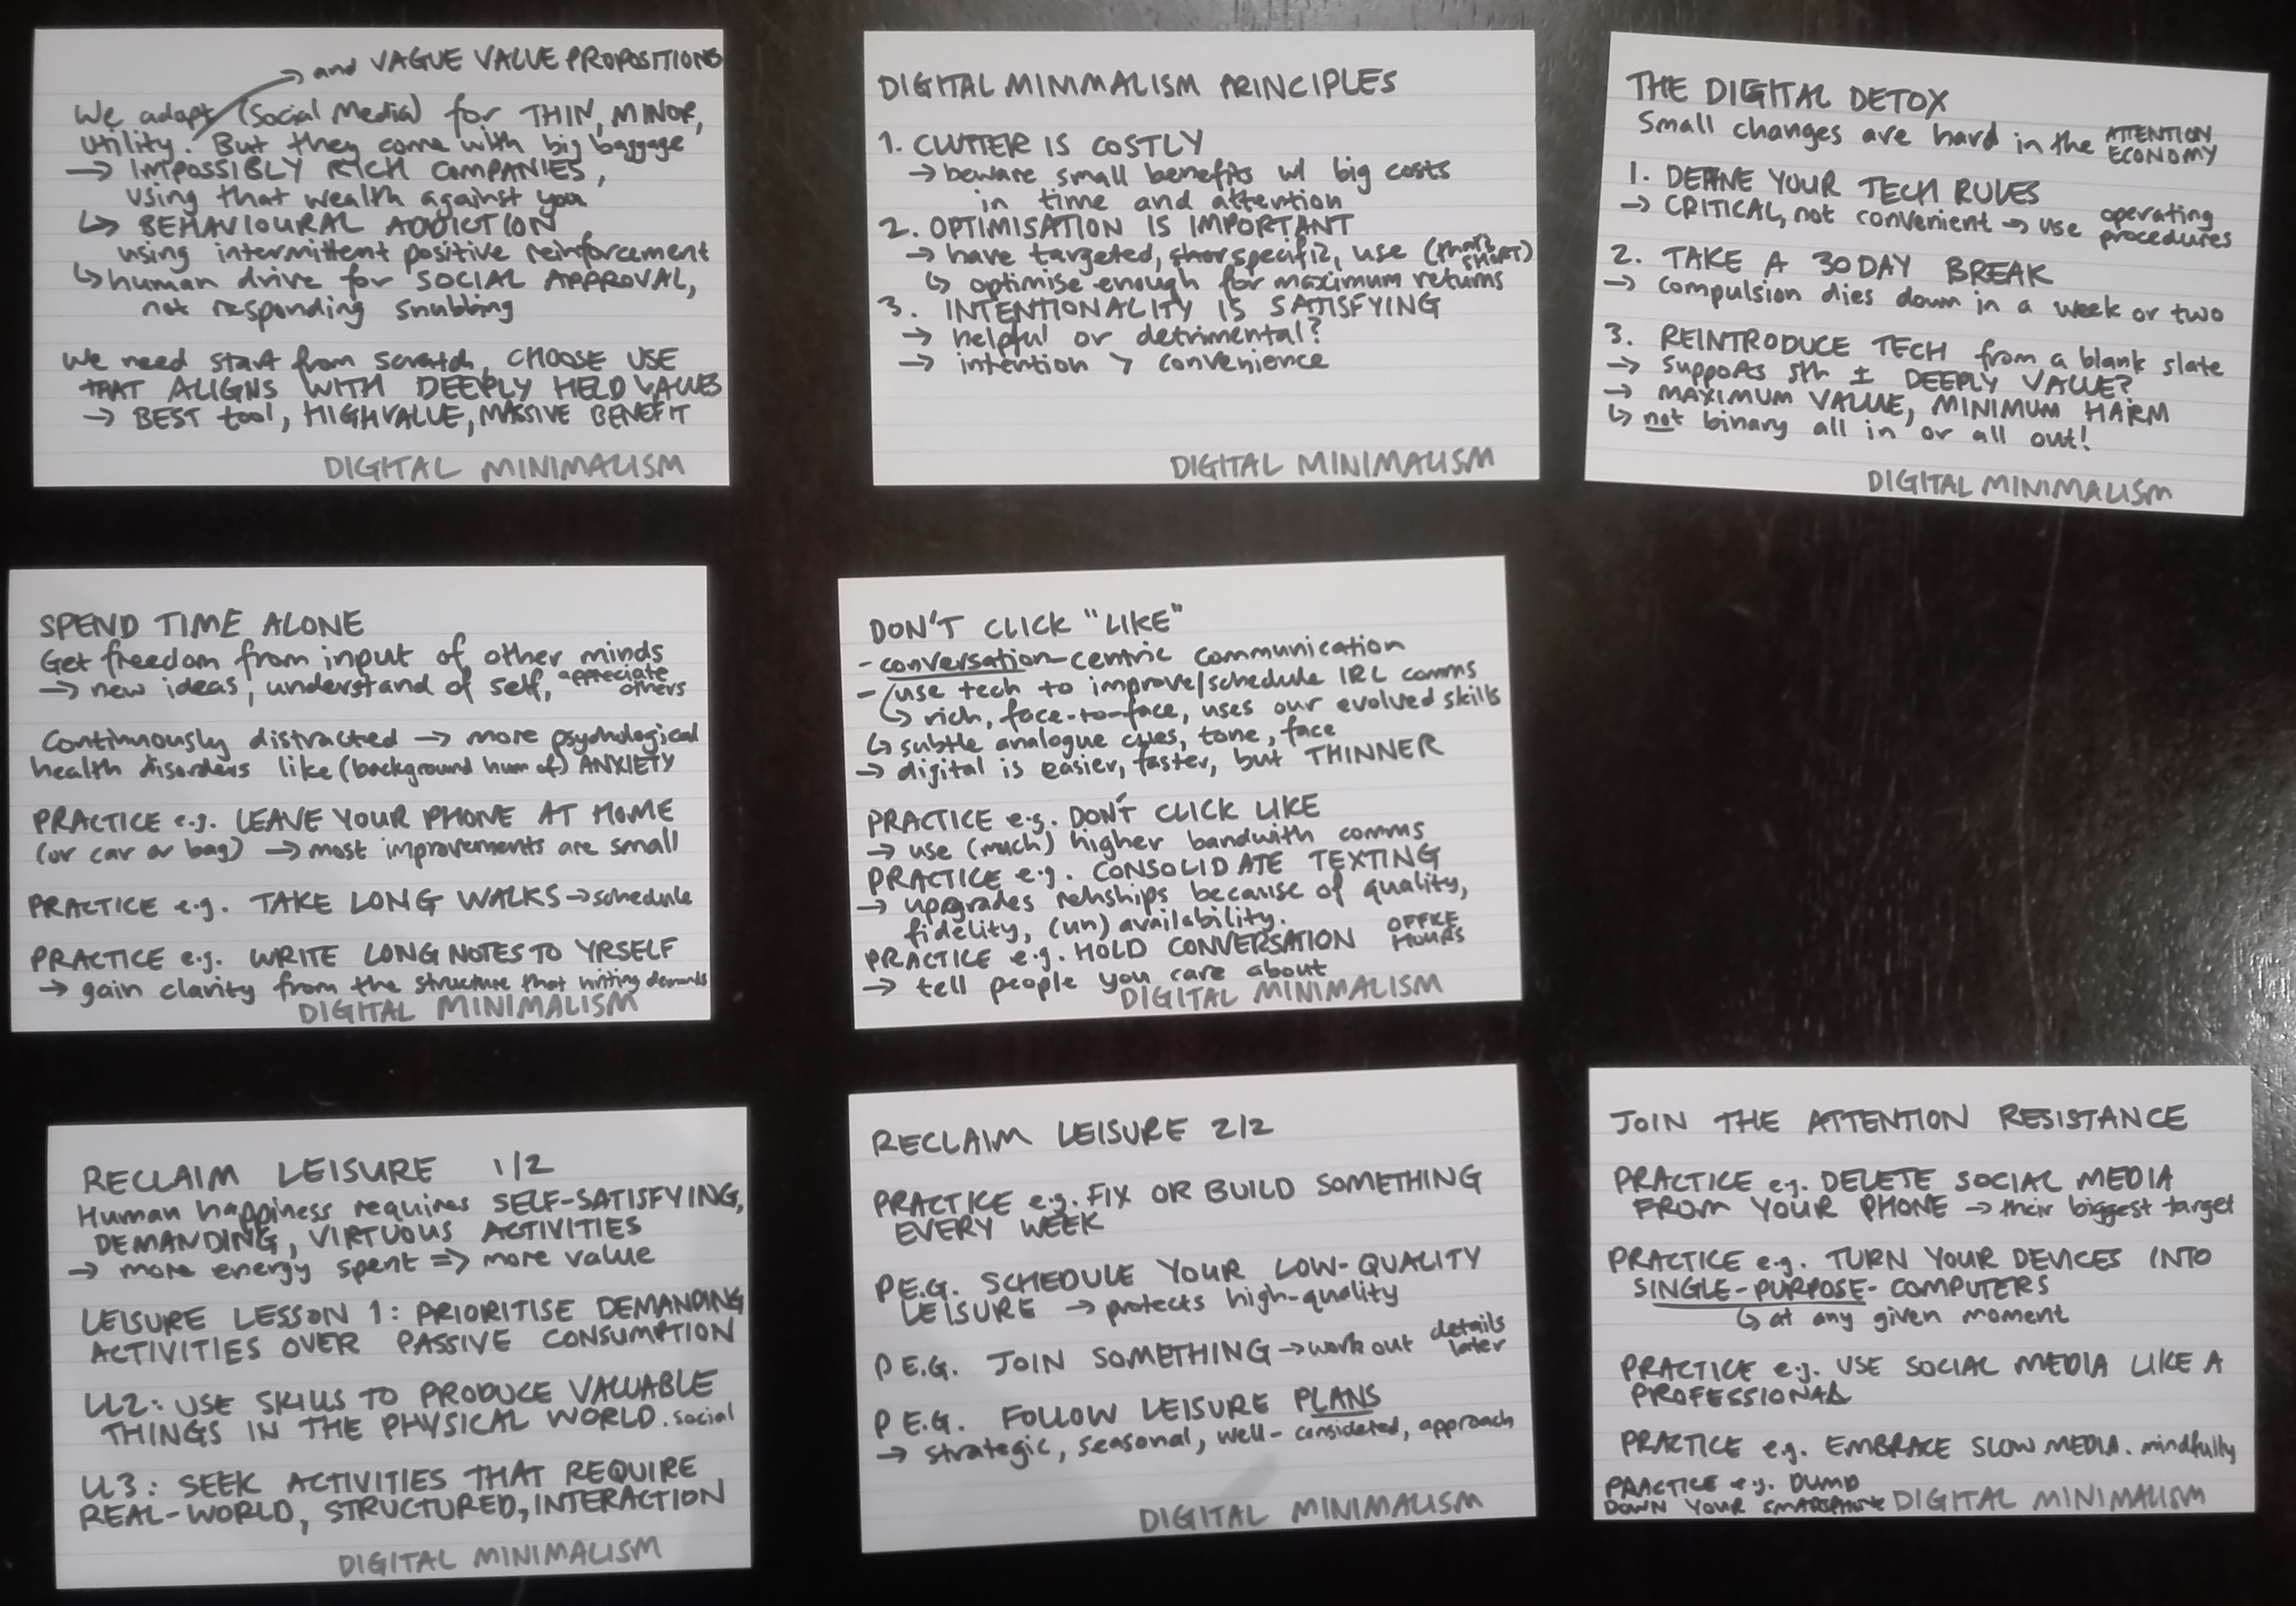 and VAGUE VALUE PROPOSITIONS
We adopt (Social Media) for THIN, MINOR,
utility. But they come with big baggage
→ IMPOSSIBLY RICH COMPANIES,
using that wealth against you
↳ BEHAVIOURAL ADDICTION
using intermittent positive reinforcement
↳ human drive for SOCIAL APPROVAL,
not responding snubbing
We need start from scratch, CHOOSE USE
THAT ALIGNS WITH DEEPLY HELD VALUES
→ BEST tool, HIGH VALUE, MASSIVE BENEFIT
DIGITAL MINIMALISM
DIGITAL MINIMALISM PRINCIPLES
1. CLUTTER IS COSTLY
→ beware small benefits w/ big costs
in time and attention
2. OPTIMISATION IS IMPORTANT
→ have targeted, specific, use
↳ optimise enough for maximum returns
3. INTENTIONALITY IS SATISFYING
→ helpful or detrimental?
→ intention > convenience
DIGITAL MINIMALISM
THE DIGITAL DETOX
Small changes are hard in the ATTENTION
ECONOMY
1. DEFINE YOUR TECH RULES
→ CRITICAL, not convenient → use operating
procedures
2. TAKE A 30 DAY BREAK
→ compulsion dies down in a week or two
3. REINTRODUCE TECH from a blank slate
→ supports sth I DEEPLY VALUE?
→ MAXIMUM VALUE, MINIMUM HARM
↳ not binary all in or all out!
DIGITAL MINIMALISM
SPEND TIME ALONE
Get freedom from input of other minds
→ new ideas, understand of self, appreciate
others
Continuously distracted → more psychological
health disorders like (background hum of) ANXIETY
PRACTICE e.g. LEAVE YOUR PHONE AT HOME
(or car or bag) → most improvements are small
PRACTICE e.g. TAKE LONG WALKS → schedule
PRACTICE e.g. WRITE LONG NOTES TO YRSELF
→ gain clarity from the structure that writing demands
DIGITAL MINIMALISM
DON'T CLICK "LIKE"
- conversation-centric communication
- use tech to improve/schedule IRL comms
↳ rich, face-to-face, uses our evolved skills
↳ subtle analogue cues, tone, face
→ digital is easier, faster, but THINNER
PRACTICE e.g. DON'T CLICK LIKE
→ use (much) higher bandwith comms
PRACTICE e.g. CONSOLIDATE TEXTING
→ upgrades relnships because of quality,
fidelity, (un)availability.
PRACTICE e.g. HOLD CONVERSATION OFFICE
HOURS
→ tell people you care about
DIGITAL MINIMALISM
RECLAIM LEISURE 1/2
Human happiness requires SELF-SATISFYING,
DEMANDING, VIRTUOUS ACTIVITIES
→ more energy spent => more value
LEISURE LESSON 1: PRIORITISE DEMANDING
ACTIVITIES OVER PASSIVE CONSUMPTION
LL2: USE SKILLS TO PRODUCE VALUABLE
THINGS IN THE PHYSICAL WORLD. social
LL3: SEEK ACTIVITIES THAT REQUIRE
REAL-WORLD, STRUCTURED, INTERACTION
DIGITAL MINIMALISM
RECLAIM LEISURE 2/2
PRACTICE e.g. FIX OR BUILD SOMETHING
EVERY WEEK
P E.G. SCHEDULE YOUR LOW-QUALITY
LEISURE → protects high-quality
P E.G. JOIN SOMETHING → work out details
later
P E.G. FOLLOW LEISURE PLANS
→ strategic, seasonal, well-considered, approach
DIGITAL MINIMALISM
JOIN THE ATTENTION RESISTANCE
PRACTICE e.g. DELETE SOCIAL MEDIA
FROM YOUR PHONE → their biggest target
PRACTICE e.g. TURN YOUR DEVICES INTO
SINGLE-PURPOSE-COMPUTERS
↳ at any given moment
PRACTICE e.g. USE SOCIAL MEDIA LIKE A
PROFESSIONAL
PRACTICE e.g. EMBRACE SLOW MEDIA. mindfully
PRACTICE e.g. DUMB
DOWN YOUR SMARTPHONE
DIGITAL MINIMALISM